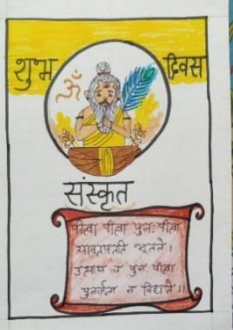 शुभ ॐ दिवस
संस्कृत
पीत्वा पीत्वा पुनः पीत्वा
यावत्पतति भूतले।
उत्थाय च पुनः पीत्वा
पुनर्जन्म न विद्यते॥